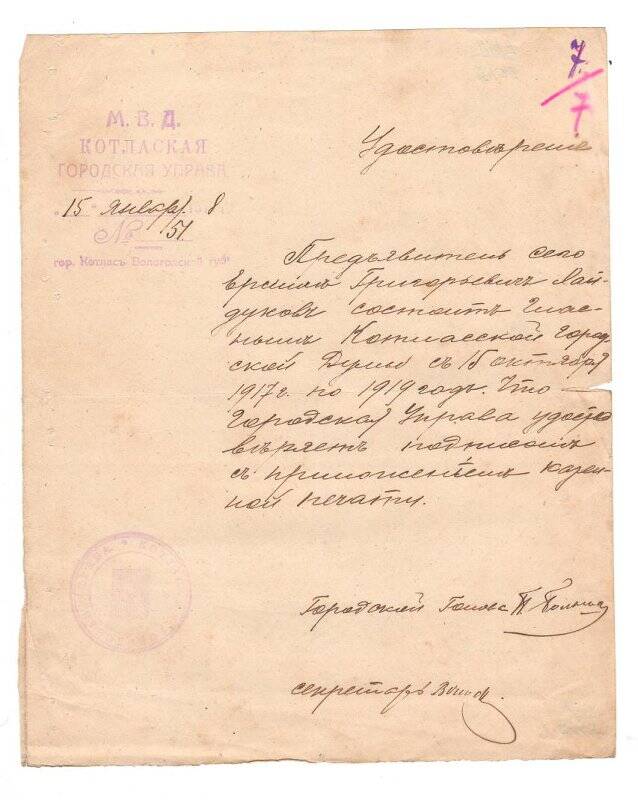 7.
7
М. В. Д.
КОТЛАСКАЯ
ГОРОДСКАЯ УПРАВА
15 январ. 8
№ 51
гор. Котласъ Вологодской губ.
Удостовѣрение
Предъявитель сего
Григорьевичъ Хай-
дуковъ состоитъ глас-
нымъ Котласской Город-
ской Думы съ 15 октября
1917 г. по 1919 годъ. Что
Городская Управа удосто
вѣряетъ подписомъ
съ приложениемъ казен-
ной печати.
Городской Голова
секретарь